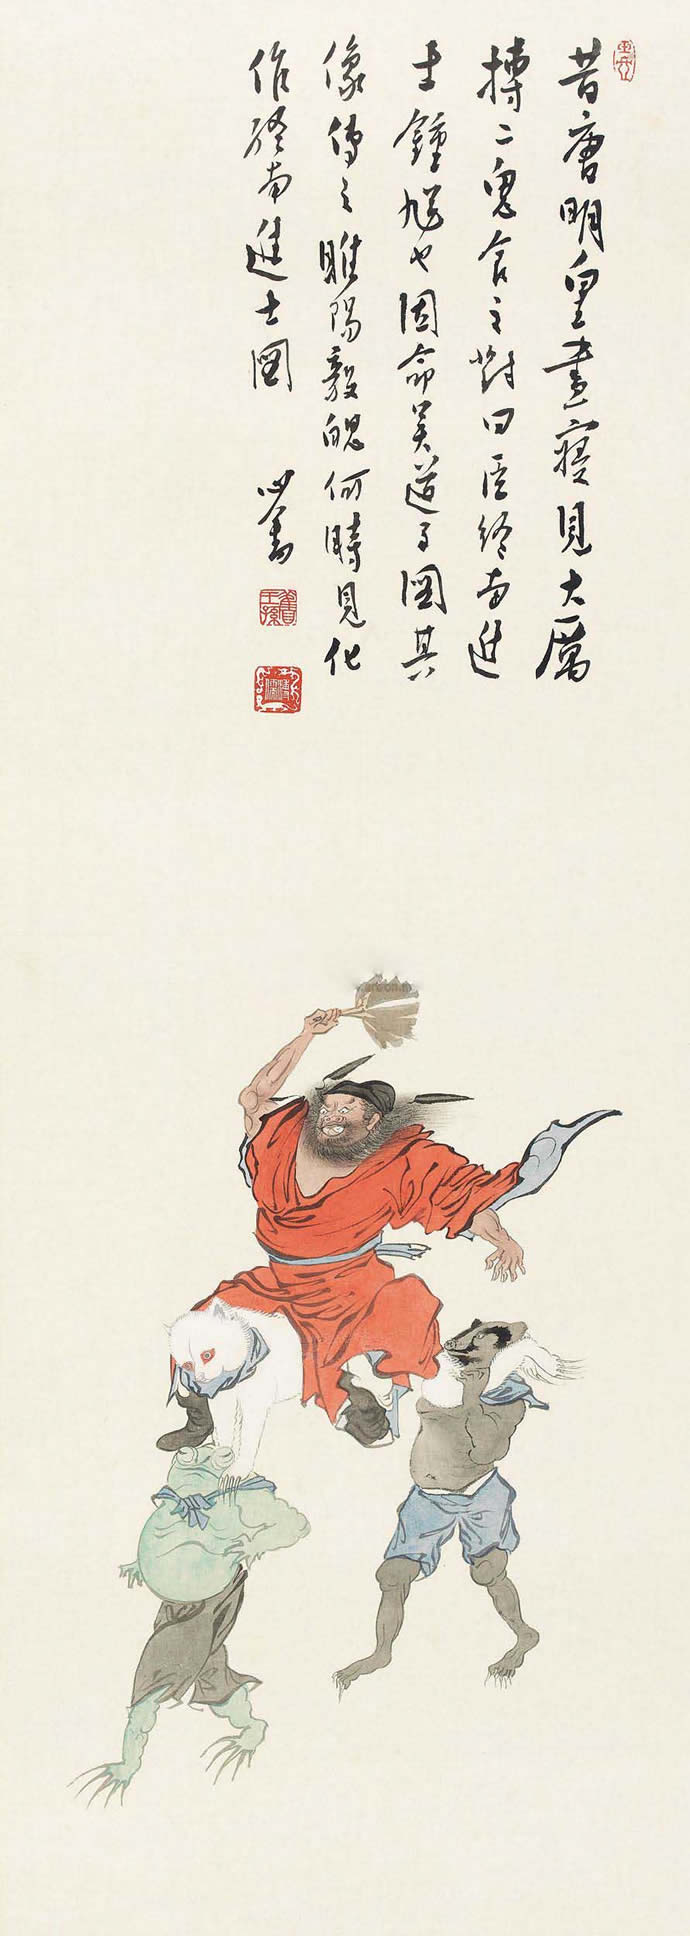 昔唐明皇晝寢見大厲
搏二鬼食之對曰臣終南進
士鍾馗也因命吳道子圖其
像傳之睢陽毅魄何時見化
作終南進士圖
心畬
舊王孫
溥儒